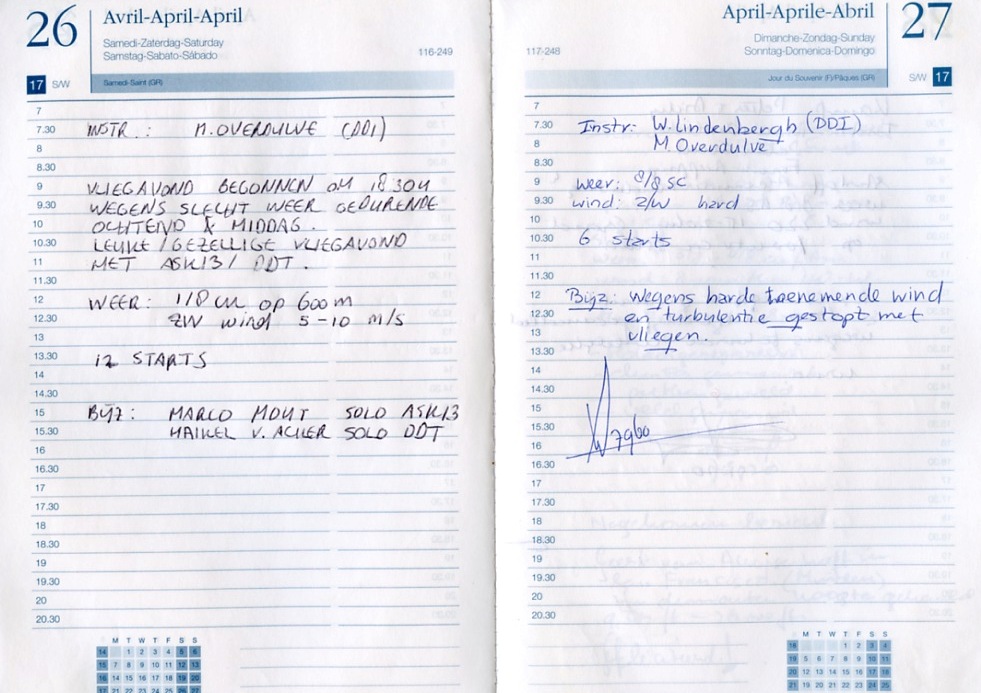 26
Avril-April-April
Samedi-Zaterdag-Saturday
Samstag-Sabato-Sábado
116-249
17 S/W
Samedi-Saint (GR)
7
7.30 INSTR.: M. OVERDULVE (DDI)
8
8.30
9 VLIEGAVOND BEGONNEN OM 18 30 U
9.30 WEGENS SLECHT WEER GEDURENDE
10 OCHTEND & MIDDAG.
10.30 LEUKE/GEZELLIGE VLIEGAVOND
11 MET ASK13/ DDT.
11.30
12 WEER: 1/8 cu op 600 m
12.30 ZW wind 5-10 m/s
13
13.30 12 STARTS
14
14.30
15 BIJZ: MARCO MOUT SOLO ASK13
15.30 MAIKEL V. ACKER SOLO DDT
16
16.30
17
17.30
18
18.30
19
19.30
20
20.30
M T W T F S S
14 1 2 3 4 5 6
15 7 8 9 10 11 12 13
16 14 15 16 17 18 19 20
17 21 22 23 24 25 26 27
April-Aprile-Abril
27
Dimanche-Zondag-Sunday
Sonntag-Domenica-Domingo
117-248
Jour du Souvenir (F)/Pâques (GR)
S/W 17
7
7.30 Instr: W. Lindenbergh (DDI)
8 M. Overdulve
8.30
9 weer: 8/8 sc
9.30 wind: Z/W hard
10
10.30 6 starts
11
11.30
12 Bijz: wegens harde toenemende wind
12.30 en turbulentie gestopt met
13 vliegen.
13.30
14
14.30
15
15.30
16
16.30
17
17.30
18
18.30
19
19.30
20
20.30
M T W T F S S
18 1 2 3 4
19 5 6 7 8 9 10 11
20 12 13 14 15 16 17 18
21 19 20 21 22 23 24 25